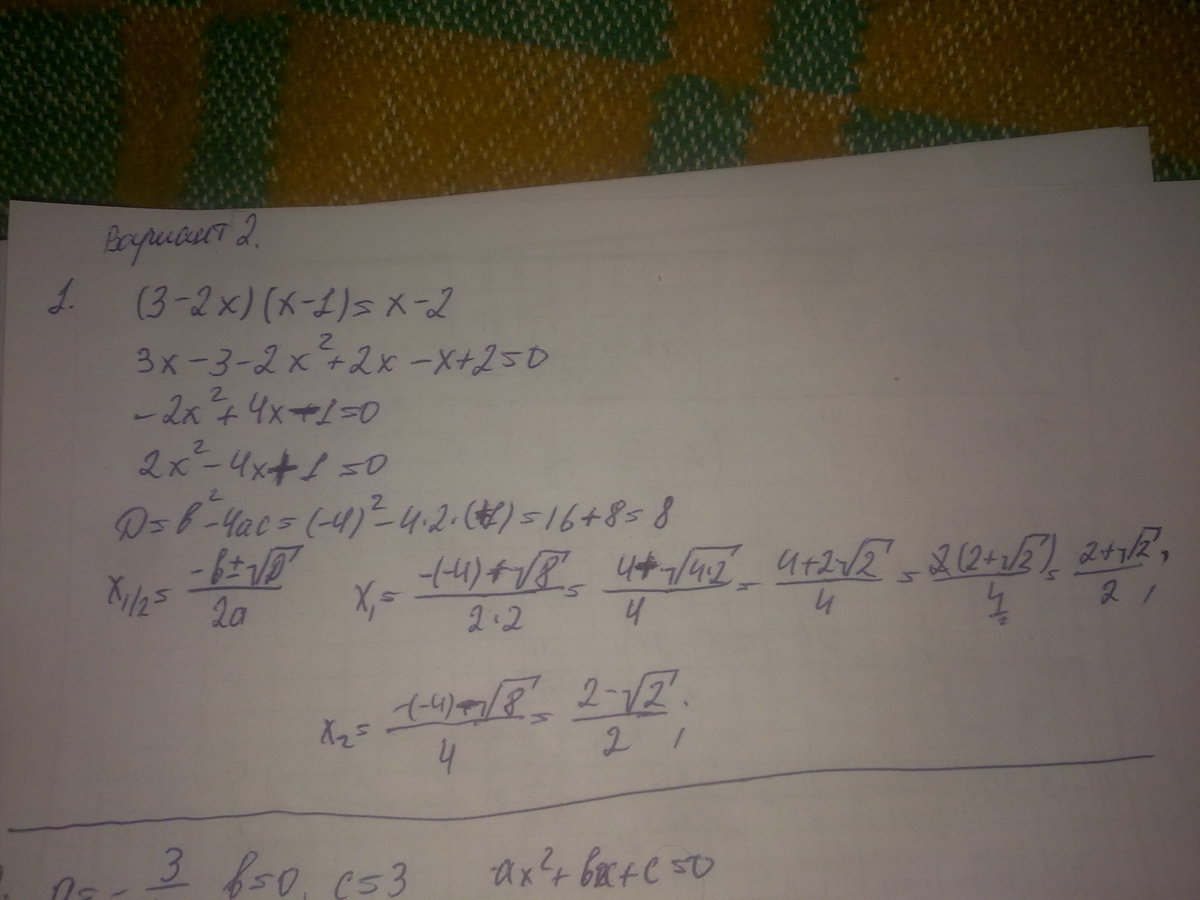 Вариант 2.
1. (3-2x)(x-1)=x-2
3x-3-2x²+2x-x+2=0
-2x²+4x-1=0
2x²-4x+1=0
D=b²-4ac=(-4)²-4·2·(+1)=16+8=8
x₁/₂= (-b±√D)/2a x₁= (-(-4)+√8)/(2·2) = (4+√(4·2))/4 = (4+2√2)/4 = 2(2+√2)/4 = (2+√2)/2;
x₂= (-(-4)-√8)/4 = (2-√2)/2;
a=-3 b=0, c=3 ax²+bx+c=0